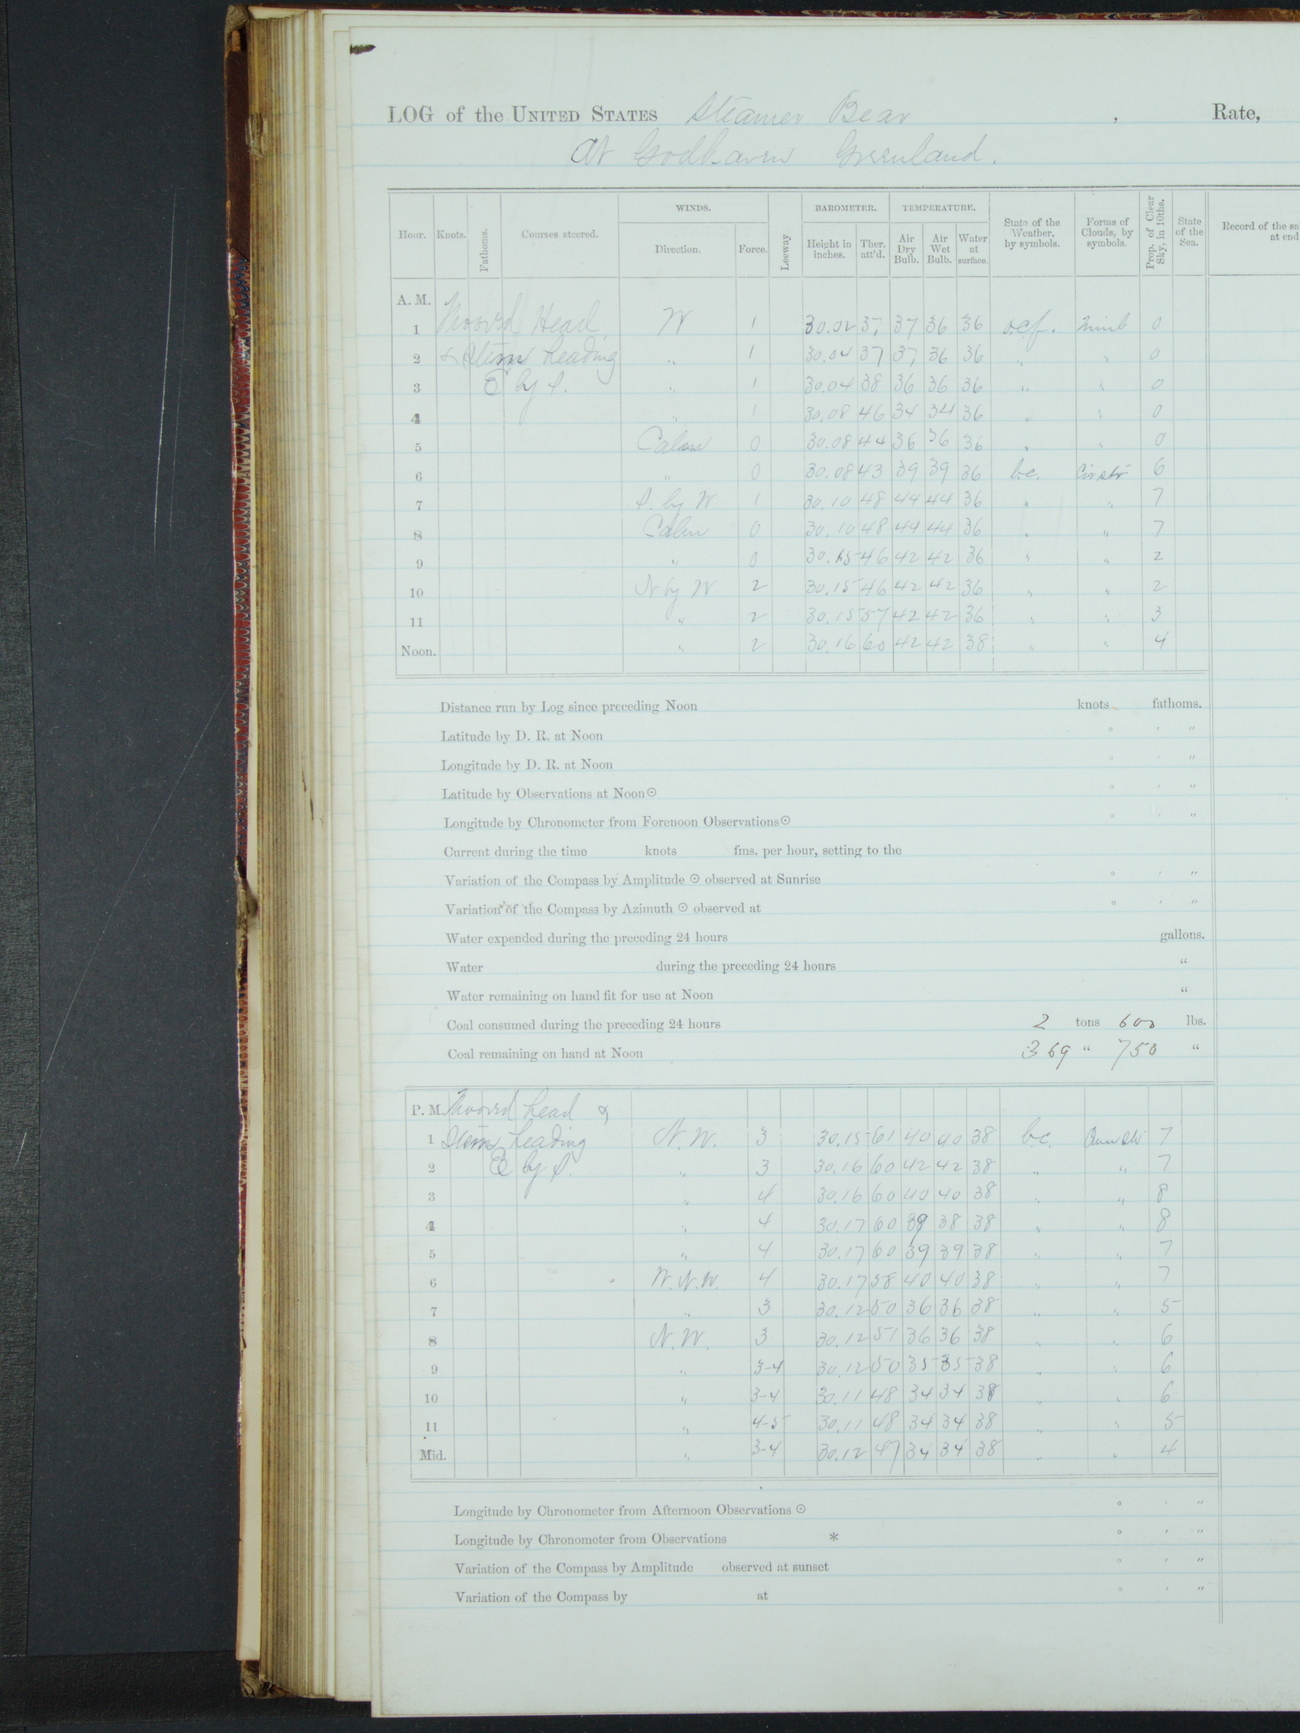 LOG of the UNITED STATES Steamer Bear , Rate,
At Godhaven Greenland.
WINDS. BAROMETER. TEMPERATURE.
Hour. Knots. Fathoms. Courses steered. Direction. Force. Leeway Height in inches. Ther. att'd. Air Dry Bulb. Air Wet Bulb. Water at surface. State of the Weather, by symbols. Forms of Clouds, by symbols. Prop. of Clear Sky, in 10ths. State of the Sea. Record of the sa
at end
A. M.
1 Moor'd Head W 1 30.02 37 37 36 36 o.c.f. Nimb 0
2 & Stern heading " 1 30.04 37 37 36 36 " " 0
3 E by S. " 1 30.04 38 36 36 36 " " 0
4 " 1 30.08 46 34 34 36 " " 0
5 Calm 0 30.08 44 36 36 36 " " 0
6 " 0 30.08 43 39 39 36 b.c. Cir str 6
7 S. by W 1 30.10 48 44 44 36 " " 7
8 Calm 0 30.10 48 44 44 36 " " 7
9 " 0 30.15 46 42 42 36 " " 2
10 N by W 2 30.15 46 42 42 36 " " 2
11 " 2 30.15 57 42 42 36 " " 3
Noon. " 2 30.16 60 42 42 38 " " 4
Distance run by Log since preceding Noon knots fathoms.
Latitude by D. R. at Noon ° ′ ″
Longitude by D. R. at Noon ° ′ ″
Latitude by Observations at Noon ☉ ° ′ ″
Longitude by Chronometer from Forenoon Observations ☉ ° ′ ″
Current during the time knots fms. per hour, setting to the
Variation of the Compass by Amplitude ☉ observed at Sunrise ° ′ ″
Variation of the Compass by Azimuth ☉ observed at ° ′ ″
Water expended during the preceding 24 hours gallons.
Water during the preceding 24 hours “
Water remaining on hand fit for use at Noon “
Coal consumed during the preceding 24 hours 2 tons 600 lbs.
Coal remaining on hand at Noon 369 “ 750 “
P. M. Moor'd head &
1 Stern heading N. W. 3 30.15 61 40 40 38 b.c. Cum Str 7
2 E by S. " 3 30.16 60 42 42 38 " " 7
3 " 4 30.16 60 40 40 38 " " 8
4 " 4 30.17 60 39 38 38 " " 8
5 " 4 30.17 60 39 39 38 " " 7
6 W. N. W. 4 30.17 58 40 40 38 " " 7
7 " 3 30.12 50 36 36 38 " " 5
8 N. W. 3 30.12 51 36 36 38 " " 6
9 " 3-4 30.12 50 35 35 38 " " 6
10 " 3-4 30.11 48 34 34 38 " " 6
11 " 4-5 30.11 48 34 34 38 " " 5
Mid. " 3-4 30.12 47 34 34 38 " " 4
Longitude by Chronometer from Afternoon Observations ☉ ° ′ ″
Longitude by Chronometer from Observations * ° ′ ″
Variation of the Compass by Amplitude observed at sunset ° ′ ″
Variation of the Compass by at ° ′ ″